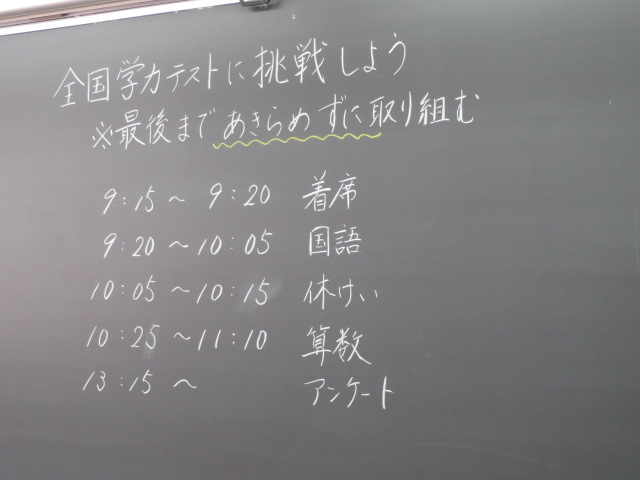 全国学力テストに挑戦しよう
※最後まであきらめずに取り組む
9:15～ 9:20 着席
9:20～10:05 国語
10:05～10:15 休けい
10:25～11:10 算数
13:15～ アンケート